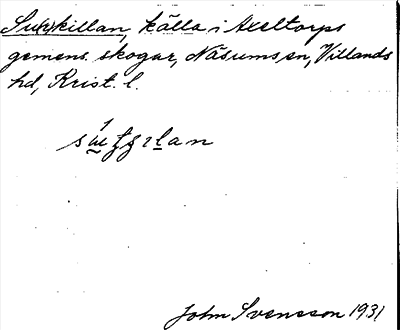 Su(r)killan, källa i Axeltorps
gemens. skogar, Näsums sn, Villands
hd, Krist. l.
John Svensson 1931